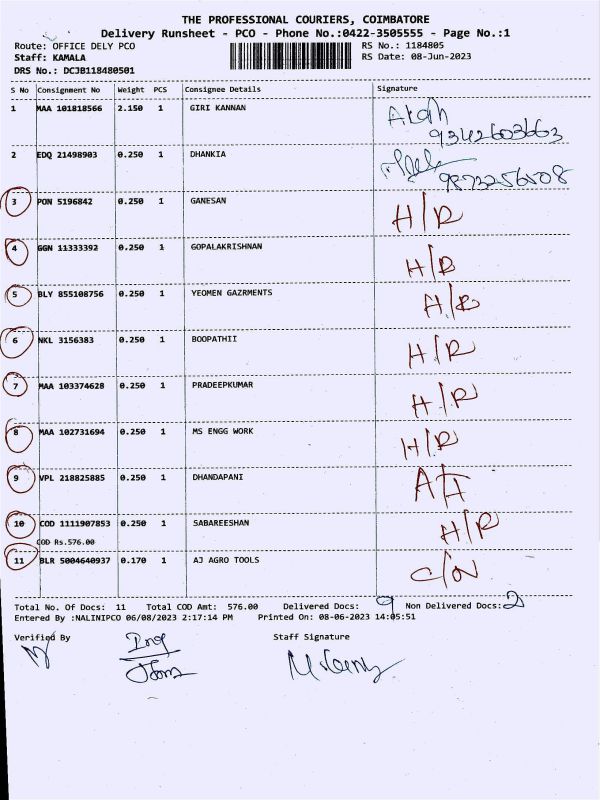 THE PROFESSIONAL COURIERS, COIMBATORE
Delivery Runsheet - PCO - Phone No.:0422-3505555 - Page No.:1
Route: OFFICE DELY PCO RS No.: 1184805
Staff: KAMALA RS Date: 08-Jun-2023
DRS No.: DCJB118480501
S No Consignment No Weight PCS Consignee Details Signature
1 MAA 101818566 2.150 1 GIRI KANNAN
9342603663
2 EDQ 21498903 0.250 1 DHANKIA
3 PON 5196842 0.250 1 GANESAN H/R
4 GGN 11333392 0.250 1 GOPALAKRISHNAN H/R
5 BLY 855108756 0.250 1 YEOMEN GAZRMENTS H/R
6 NKL 3156383 0.250 1 BOOPATHII H/R
7 MAA 103374628 0.250 1 PRADEEPKUMAR H/R
8 MAA 102731694 0.250 1 MS ENGG WORK H/R
9 VPL 218825885 0.250 1 DHANDAPANI
10 COD 1111907853 0.250 1 SABAREESHAN H/R
COD Rs.576.00
11 BLR 5004640937 0.170 1 AJ AGRO TOOLS C/N
Total No. Of Docs: 11 Total COD Amt: 576.00 Delivered Docs: 9 Non Delivered Docs: 2
Entered By :NALINIPCO 06/08/2023 2:17:14 PM Printed On: 08-06-2023 14:05:51
Verified By Staff Signature